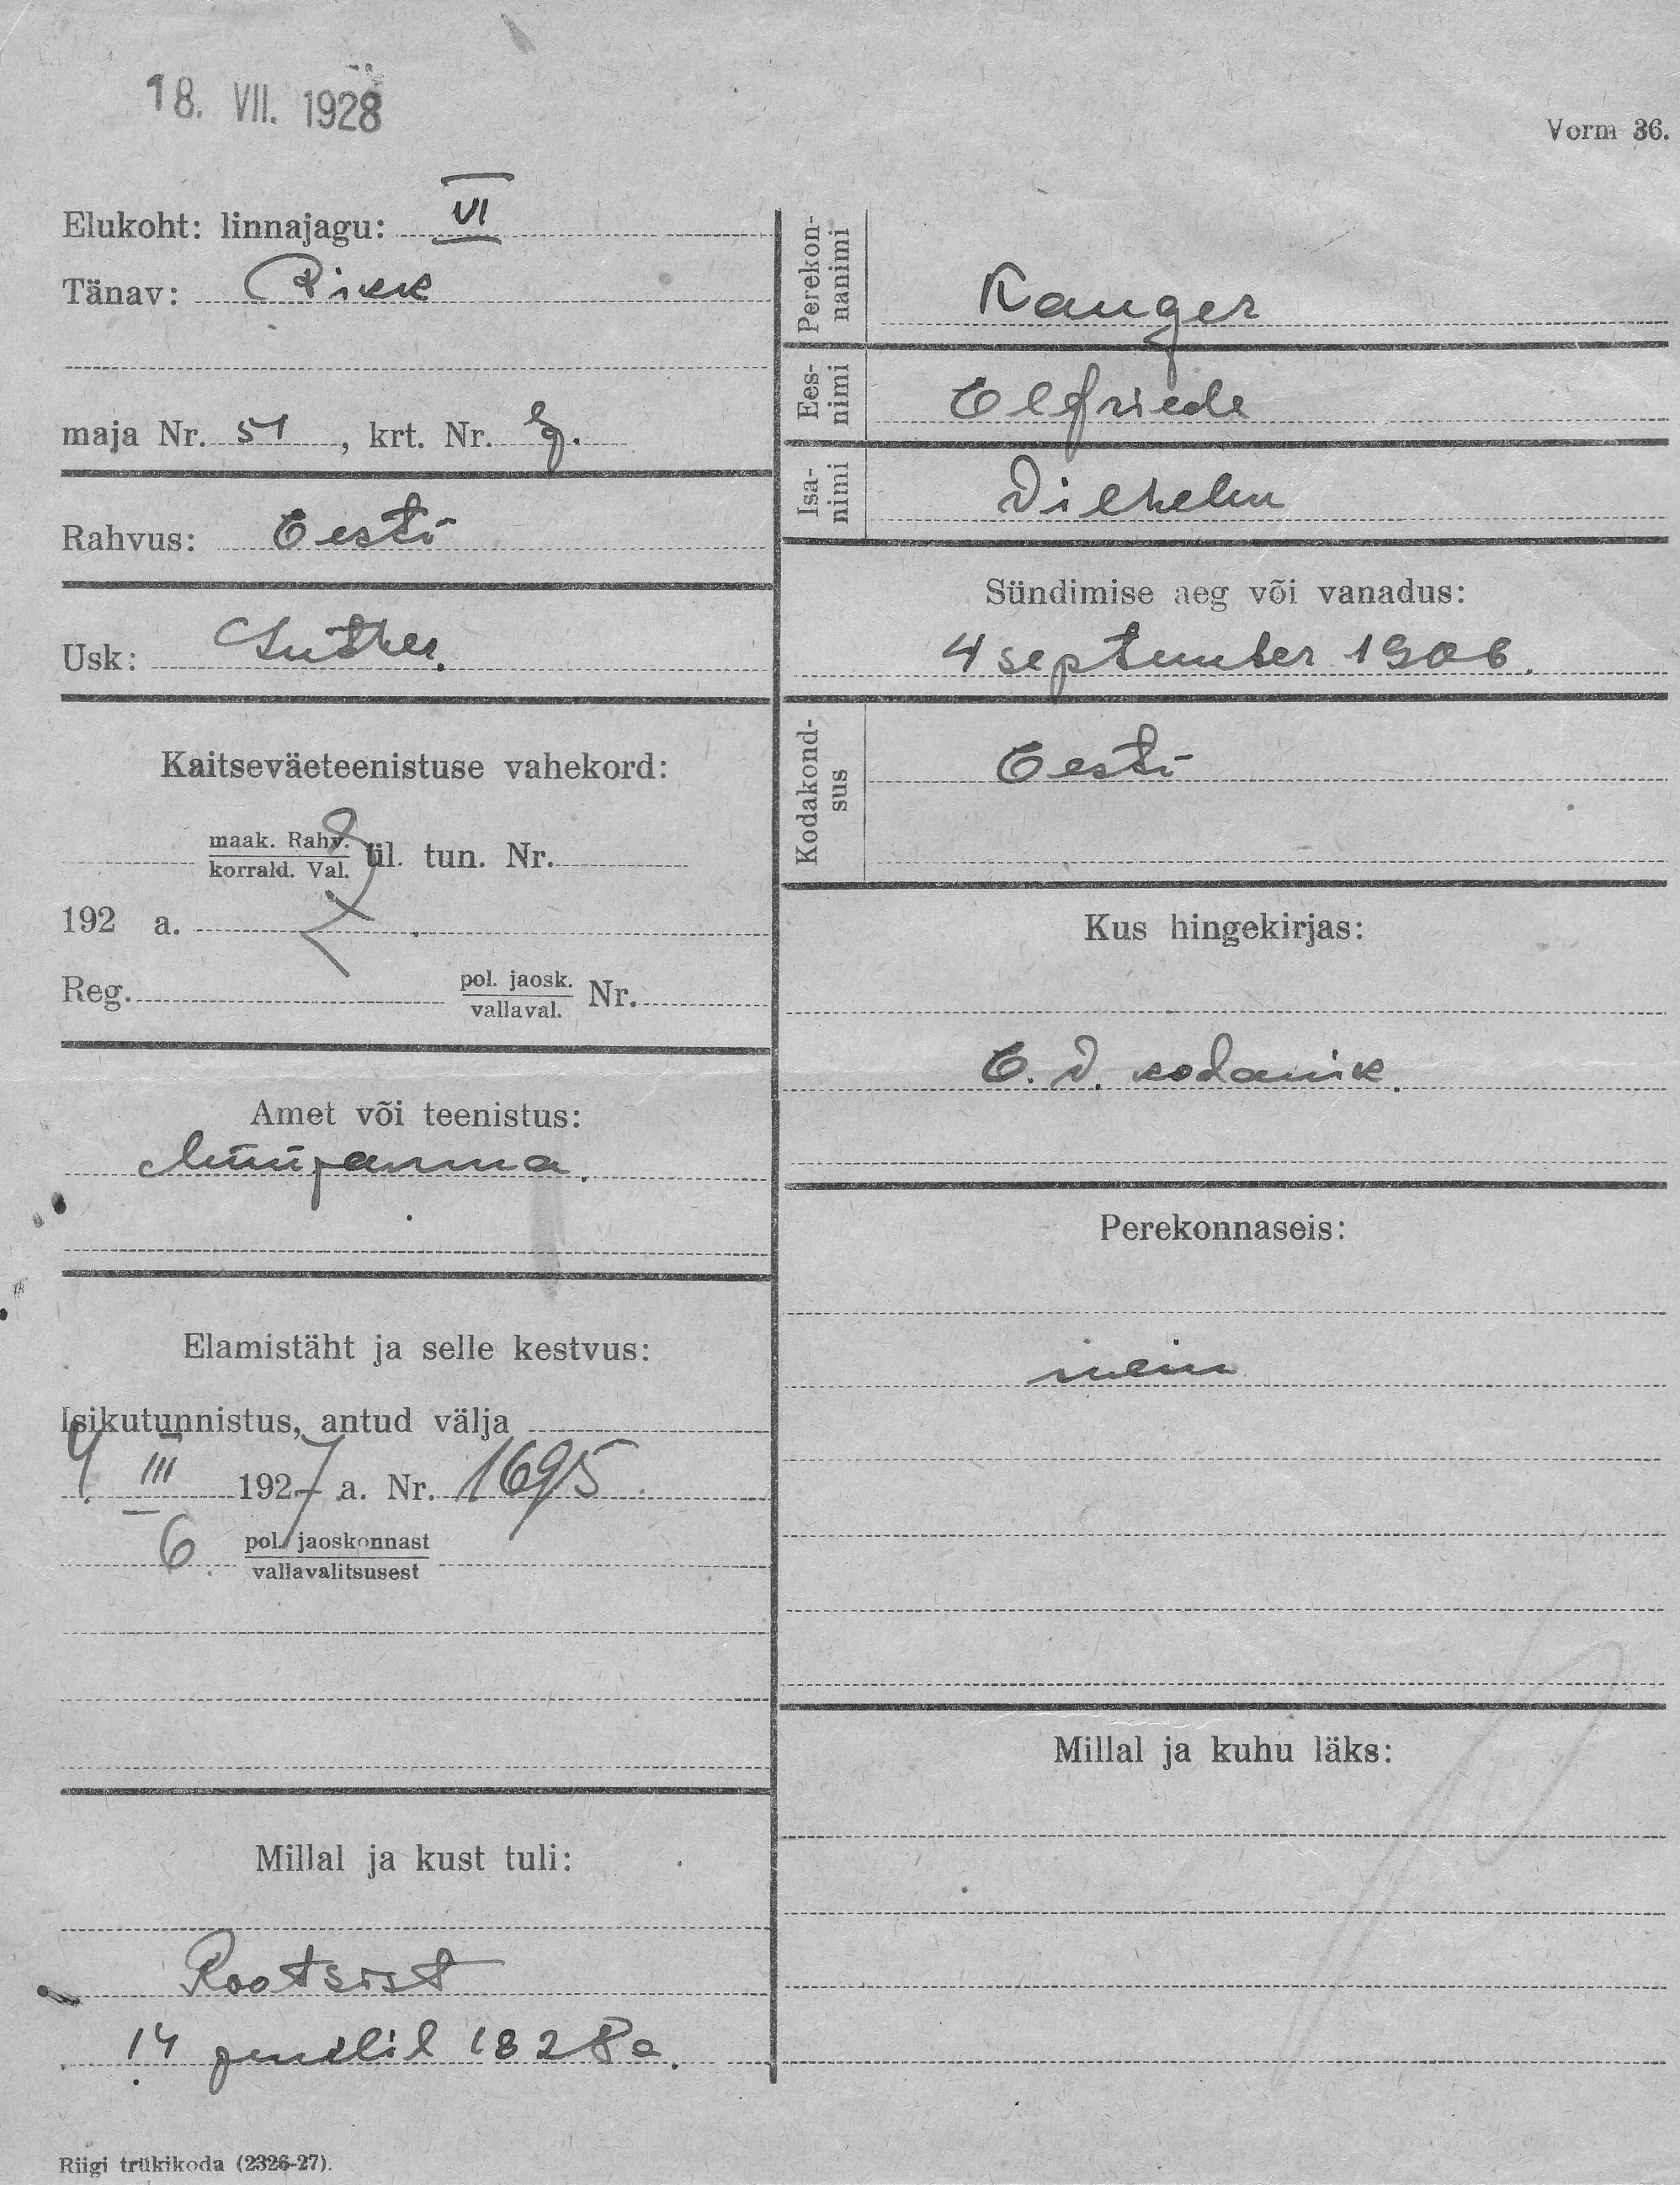 18. VII. 1928
Vorm 36.
Elukoht: linnajagu: VI
Tänav: Pikk
maja Nr. 51, krt. Nr.
Rahvus: Eesti
Usk: Luther.
Kaitseväeteenistuse vahekord:
maak. Rahv.
korrald. Val. ül. tun. Nr.
192 a.
Reg. pol. jaosk.
vallaval. Nr.
Amet või teenistus:
Müüjanna.
Elamistäht ja selle kestvus:
Isikutunnistus, antud välja
4. III 1927 a. Nr. 1695
6. pol. jaoskonnast
vallavalitsusest
Millal ja kust tuli:
Rootsist
14 juulil 1928 a.
Riigi trükikoda (2326-27).
Perekon-
nanimi
Kanger
Ees-
nimi
Elfriede
Isa-
nimi
Vilhelm
Sündimise aeg või vanadus:
4 september 1906.
Kodakond-
sus
Eesti
Kus hingekirjas:
E. V. kodanik.
Perekonnaseis:
Millal ja kuhu läks: